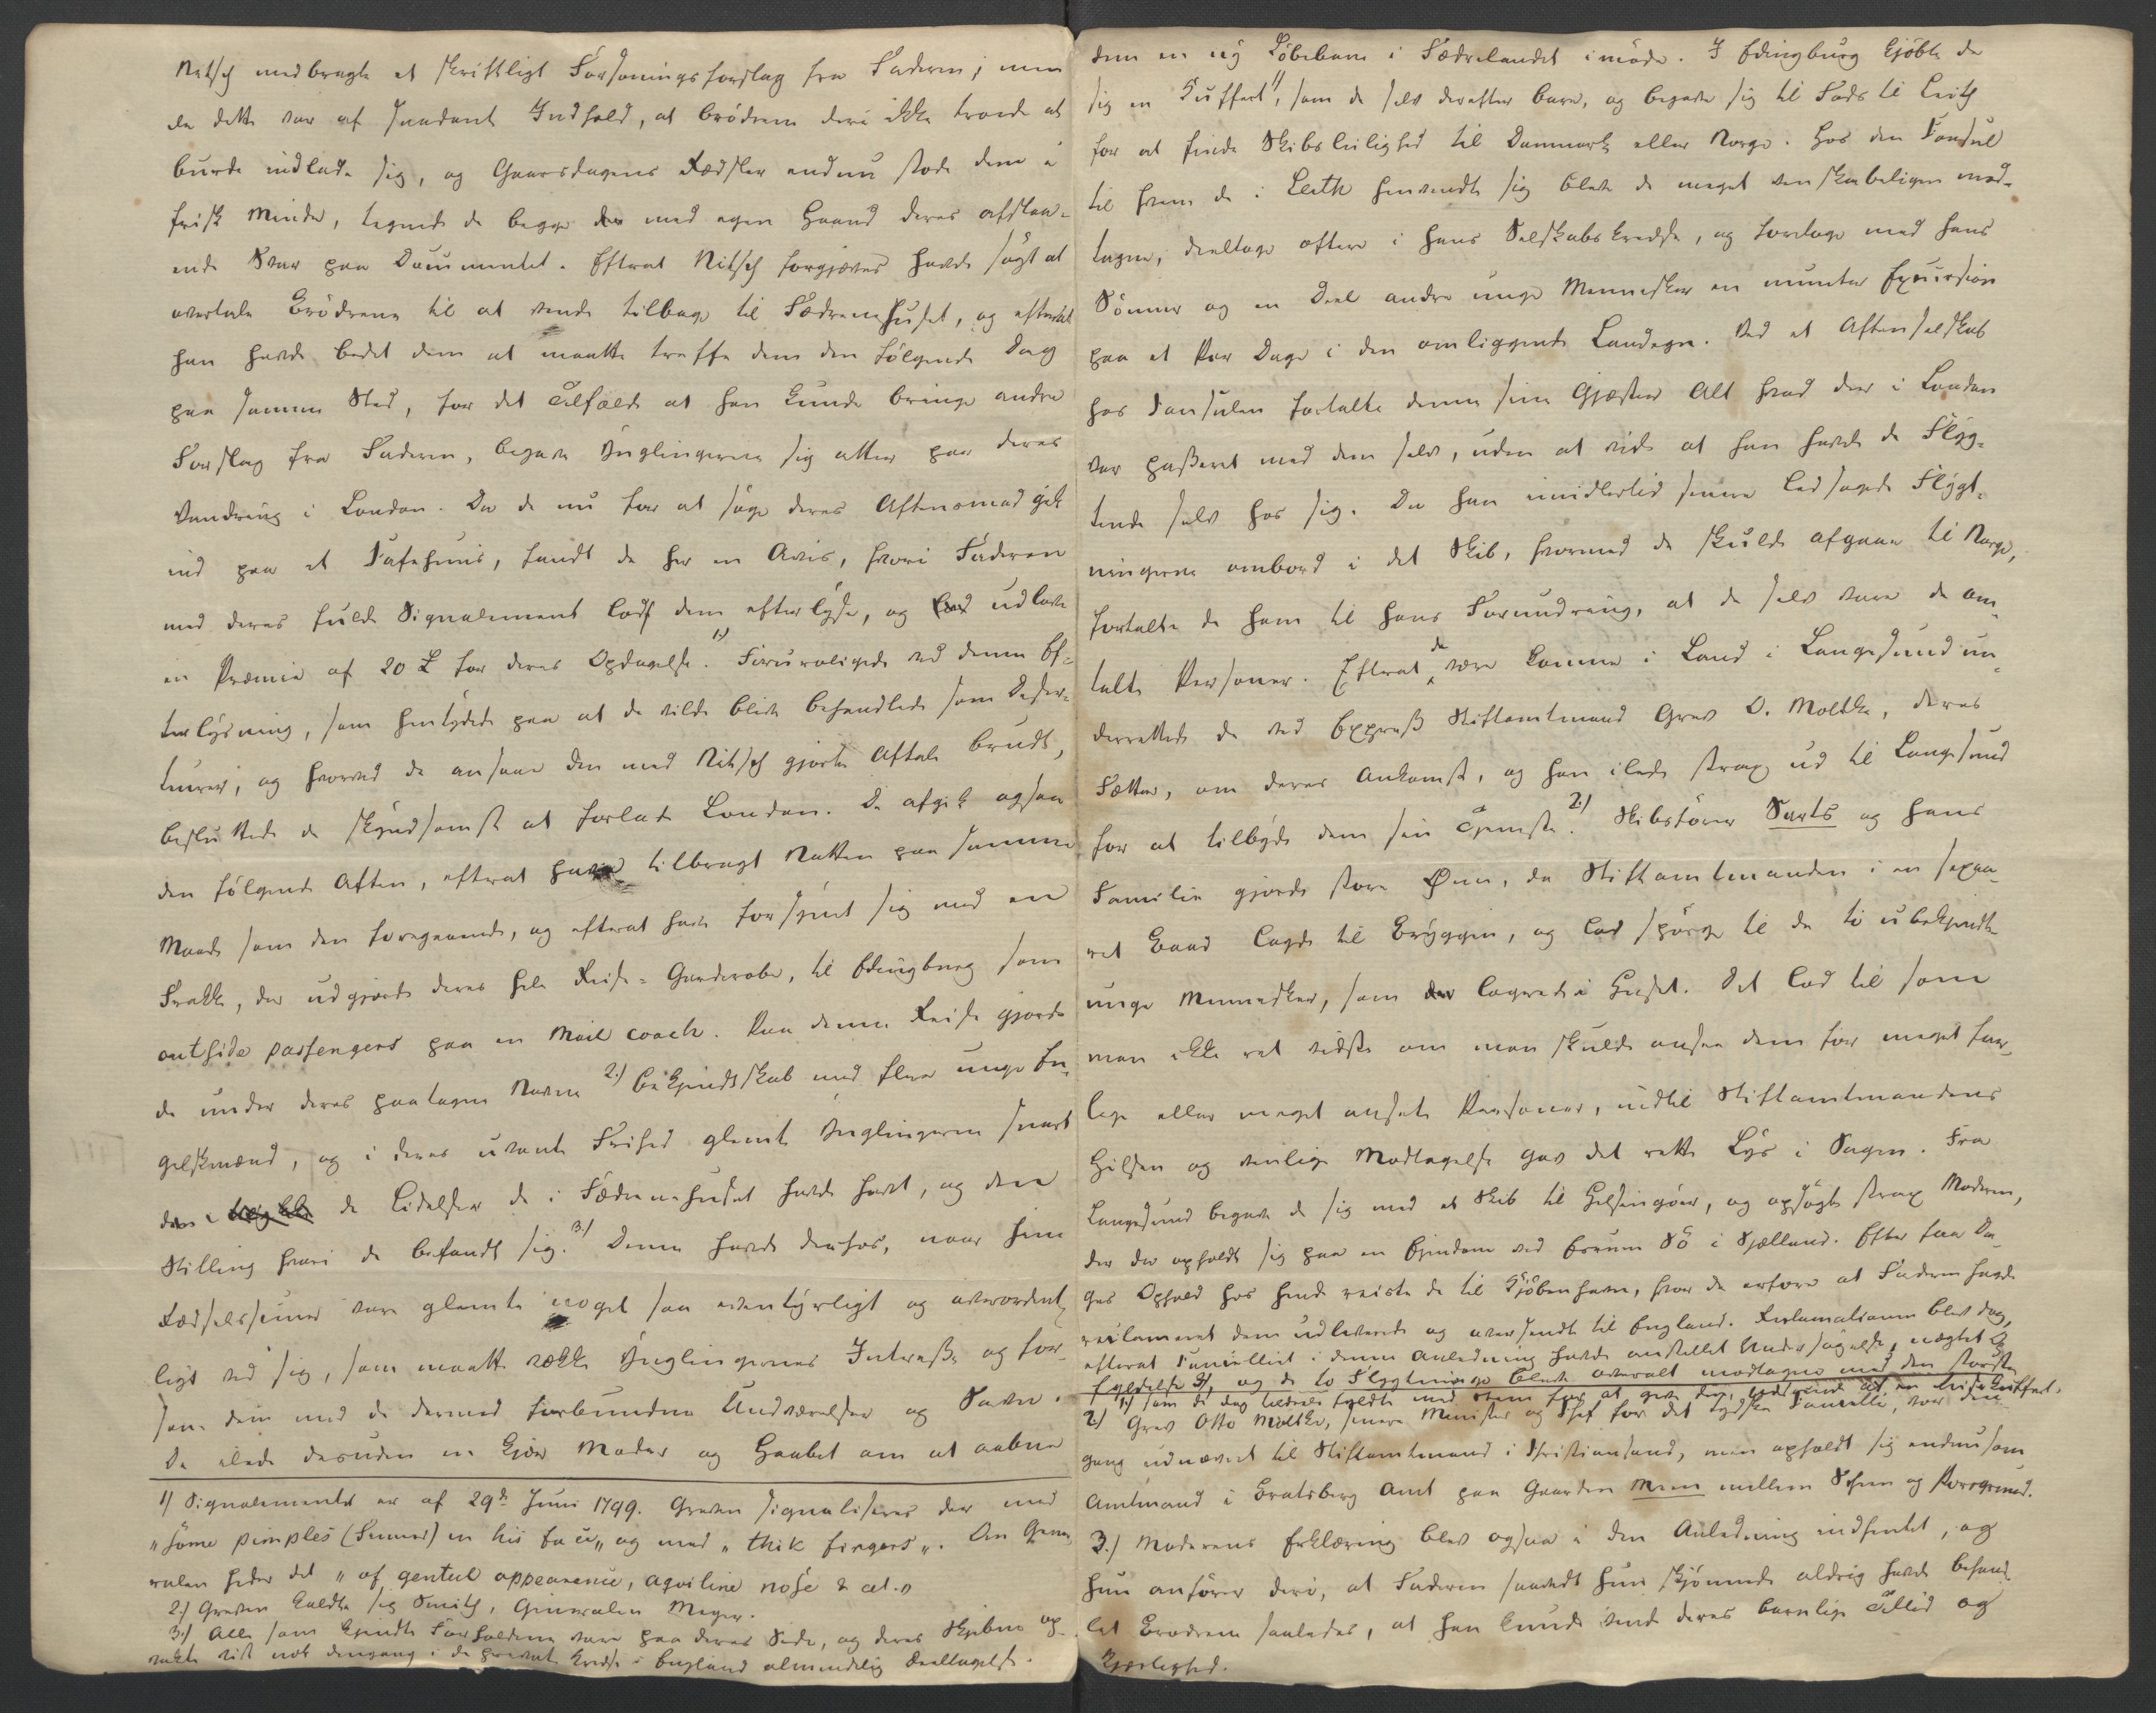 Nitsch medbragte et skriftligt Forsoningsforslag fra Faderen; men
da dette var af saadant Indhold, at Brödrene deri ikke troede at
burde indlade sig, og Gaarsdagens Rædsler endnu stode dem i
frisk Minde, tegnede de begge med egen Haand deres afslaa-
ende Svar paa Documentet. Efterat Nitsch forgjæves havde sögt at
overtale Brödrene til at vende tilbage til Fædrenehuset, og efterat
han havde bedet dem at maatte træffe dem den fölgende Dag
paa samme Sted, for det Tilfælde at han kunde bringe andre
Forslag fra Faderen, begave Ynglingerne sig atter paa deres
Vandring i London. Da de nu for at söge deres Aftensmad gik
ind paa et Kafehuus, fandt de her en Avis, hvori Faderen
med deres fulde Signalement lod dem efterlyse, og udlove
en Præmie af 20 £ for deres Opdagelse. 1) Foruroligede ved denne Ef-
terlysning, som hentydede paa at de vilde blive behandlede som Deser-
teurer, og hvorved de ansaae den med Nitsch gjorte Aftale brudt,
besluttede de skyndsomst at forlade London. De afgik ogsaa
den fölgende Aften, efterat have tilbragt Natten paa samme
Maade som den foregaaende, og efterat have forsynet sig med en
Frakke, der udgjorde deres hele Reise-Garderobe, til Edingburg som
outside passengers paa en Mail coach. Paa denne Reise gjorde
de under deres paatagne Navne 2.) Bekjendtskab med flere unge En-
gelskmænd, og i deres uvante Frihed glemte Ynglingerne snart
de Lidelser de i Fædrenehuset havde havt, og den
Stilling hvori de befandt sig. 3.) Denne havde derhos, naar hine
Rædselsscener vare glemte noget saa eventyrligt og overordent-
ligt ved sig, som maatte vække Ynglingernes Interesse og for-
sone dem med de dermed forbundne Undværelser og Savn.
De ilede desuden en kjær Moder og Haabet om at aabne
1) Signalementet er af 29de Juni 1799. Greven signaliseres der med
„some pimples (Finner) in his face„ og med „thik fingers„. Om Gene-
ralen heder det „of genteel appearence, aqviline nose & cet.„
2.) Greven kaldte sig Smith, Generalen Meyer.
3.) Alle som kjendte Forholdene vare paa deres Side, og deres Skjebne op-
vakte vist nok dengang i de Kredse i England almindelig Deeltagelse.
dem en ny Löbebane i Fædrelandet imöde. I Edingburg kjöbte de
sig en Kuffert 1), som de selv derefter bare, og begave sig til Fods til Leith
for at finde Skibsleilighed til Danmark eller Norge. Hos den Konsul
til hvem de i Leith henvendte sig bleve de meget venskabeligen mod-
tagne, deeltoge oftere i hans Selskabskredse, og foretoge med hans
Sönner og en Deel andre unge Mennesker en munter Excursion
paa et Par Dage i den omliggende Landegn. Ved et Aftenselskab
hos Konsulen fortalte denne sine Gjæster Alt hvad der i London
var passeret med dem selv, uden at vide at han havde de Flyg-
tende selv hos sig. Da han imidlertid senere ledsagede Flygt-
ningerne ombord i det Skib, hvormed de skulde afgaae til Norge,
fortalte de ham til hans Forundring, at de selv vare de om-
talte Personer. Efterat de vare komne i Land i Langesund un-
derrettede de ved Express Stiftamtmand Grev O. Moltke, deres
Fætter, om deres Ankomst, og han ilede strax ud til Langesund
for at tilbyde dem sin Tjeneste. 2.) Skibsförer Sarts og hans
Familie gjorde store Øine, da Stiftamtmanden i en sexaa-
ret Baad lagde til Bryggen, og lod spörge til de to ubekjendte
unge Mennesker, som logerede i Huset. Det lod til som
man ikke ret vidste om man skulde ansee dem for meget far-
lige eller meget ansete Personer, indtil Stiftamtmandens
Hilsen og venlige Modtagelse gav det rette Lys i Sagen. Fra
Langesund begave de sig med et Skib til Helsingöer, og opsögte strax Moderen,
der da opholdt sig paa en Eiendom ved Esrum Sö i Sjælland. Efter faa Da-
ges Ophold hos hende reiste de til Kjöbenhavn, hvor de erfore at Faderen havde
reclameret dem udleverede og oversendte til England. Reclamationen blev dog,
efterat Cancelliet i denne Anledning havde anstillet Undersögelse, nægtet
fyldelse 3), og de to Flygtninge bleve overalt modtagne med den störste
1.) som de dog tildeels fyldte med Steen for at give den Udseende af en Reisekuffert.
2) Grev Otto Moltke, senere Minister og Chef for det tydske Cancellie, var den-
gang udnævnt til Stiftamtmand i Christiansand, men opholdt sig endnu som
Amtmand i Bratsberg Amt paa Gaarden Mæen mellem Skien og Porsgrund.
3.) Moderens Erklæring blev ogsaa i den Anledning indhentet, og
hun anförer deri, at Faderen saavidt hun skjönnede aldrig havde behand-
let Brödrene saaledes, at han kunde vende deres barnlige Tillid og
Kjærlighed.